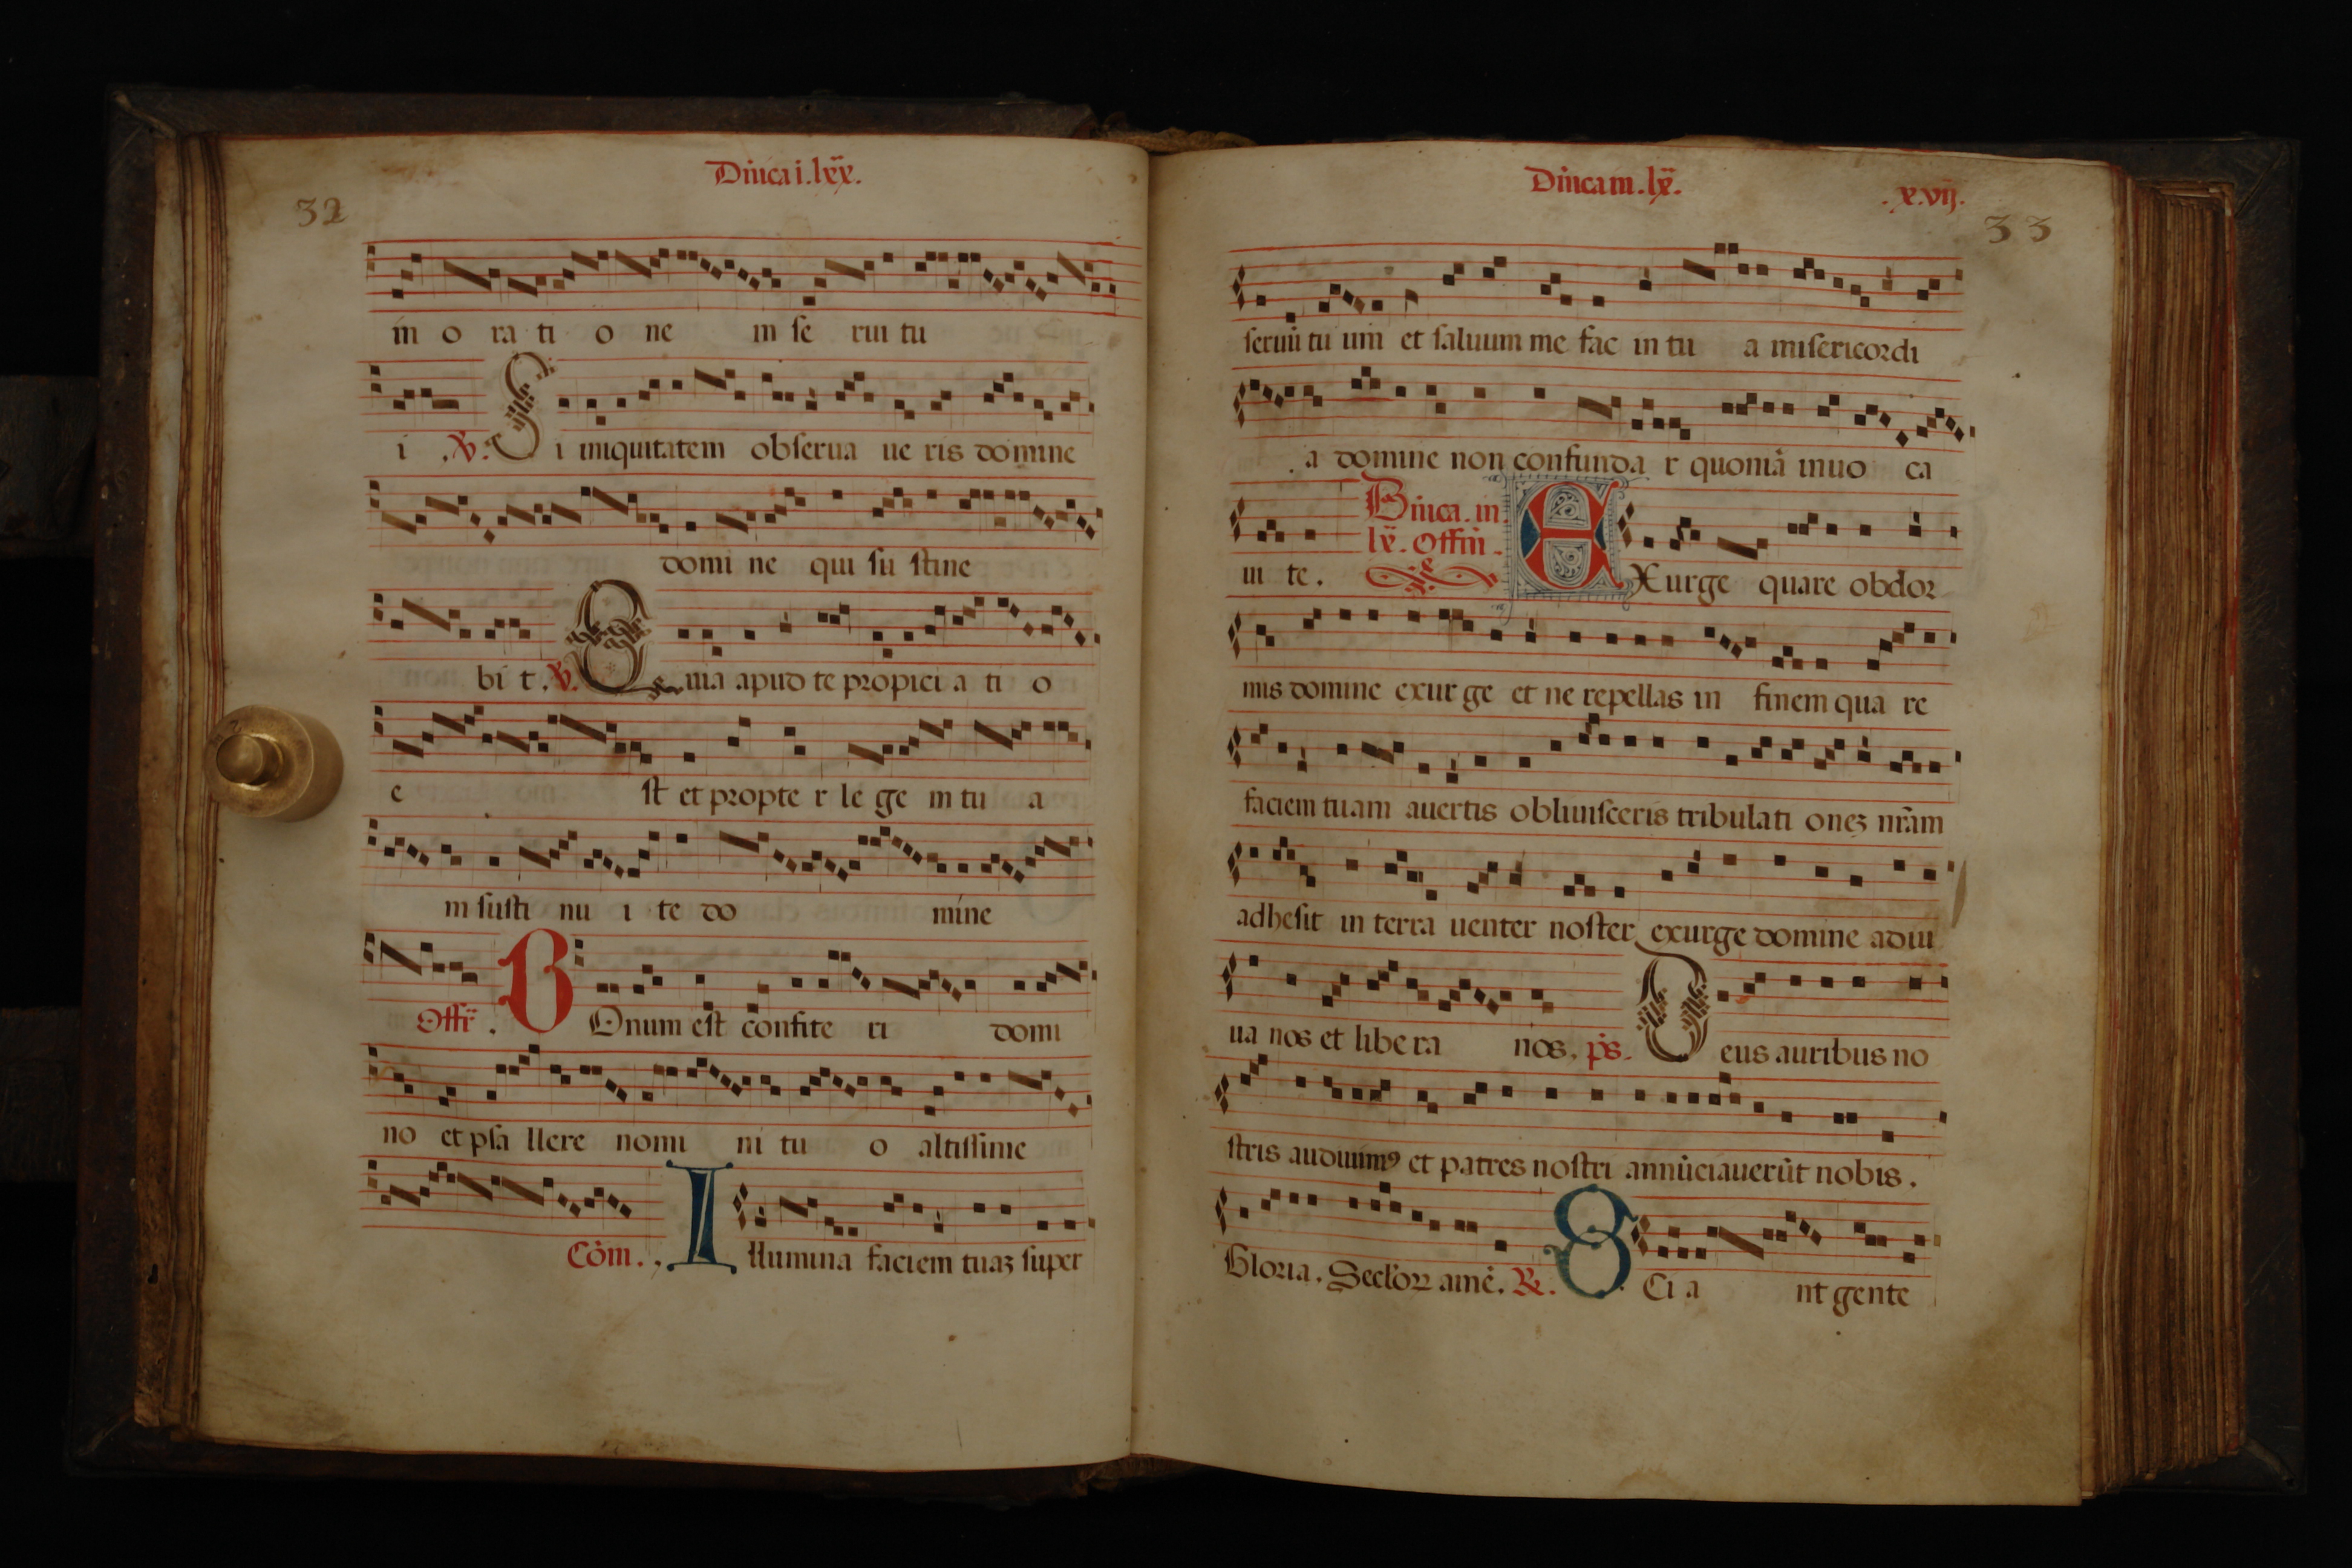 Dn̄ica i. lxx̄.
32
in o ra ti o ne in se rui tu
i . ℣. S i iniquitatem obserua ue ris domine
domi ne qui su stine
bi t . ℣. Q uia apud te propici a ti o
e st et propte r le ge m tu a
m susti nu i te do mine
Offr̄ . B Onum est confite ri domi
no et psa llere nomi ni tu o altissime
Cōm . I llumina faciem tuaꝫ super
Dn̄ica in . lx̄.
.x.vij.
33
seruū tu um et saluum me fac in tu a misericordi
. a domine non confunda r quoniā inuo ca
ui te . Dn̄ica . in . E Xurge quare obdor
lx̄ . Offm̄ .
mis domine exur ge et ne repellas in finem qua re
faciem tuam auertis obliuisceris tribulati oneꝫ nr̄am
adhesit in terra uenter noster exurge domine adiu
ua nos et libe ra nos . p̄s . D eus auribus no
stris audiuimꝰ et patres nostri annūciauerūt nobis .
Gloria . Seclōꝝ amē . ℞ . S Ci a nt gente